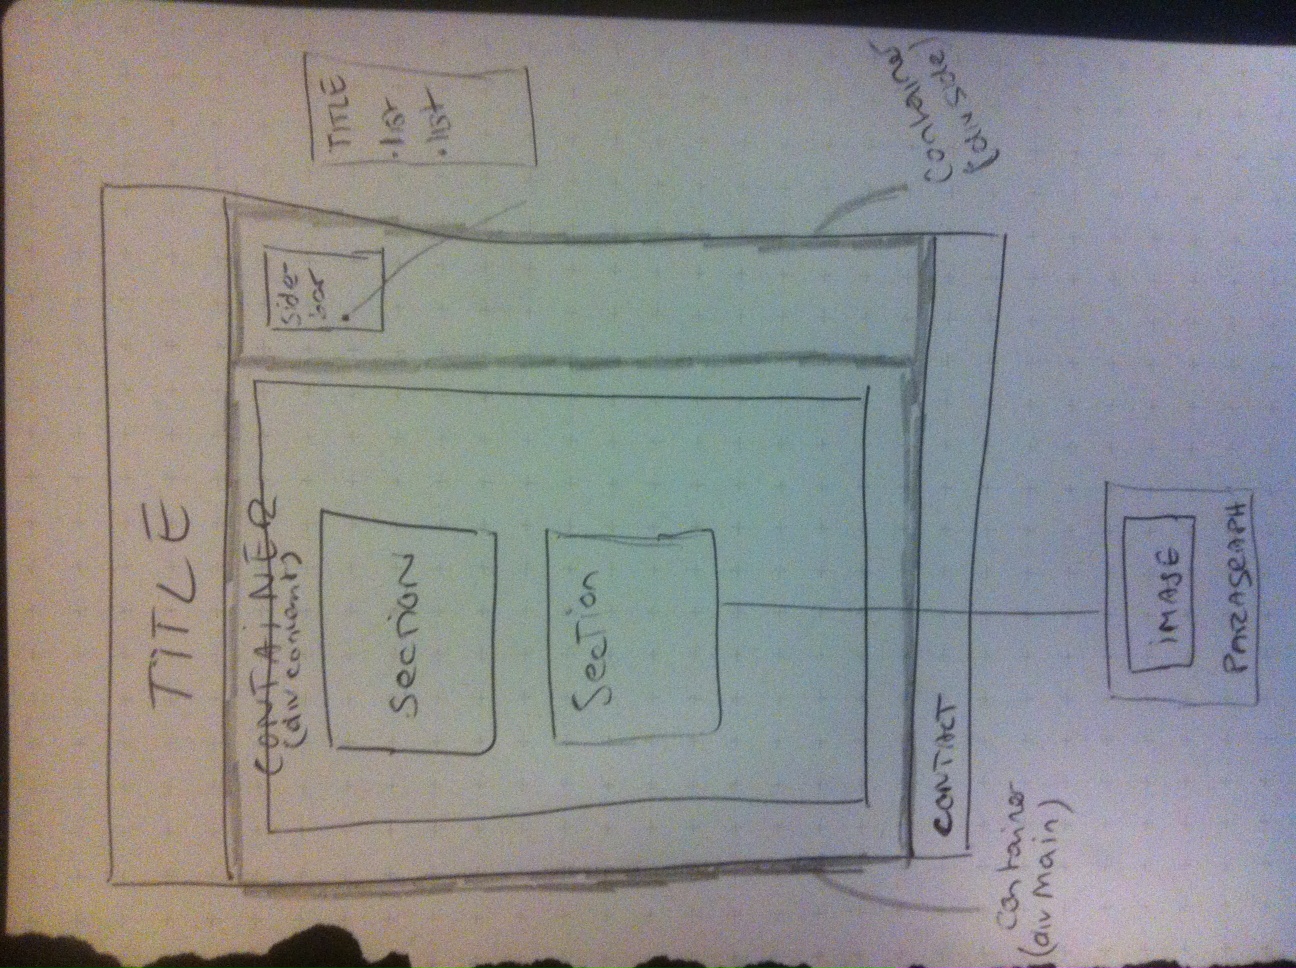 TITLE
CONTAINER
(div content)
Section
Section
side-
bar
TITLE
• list
• list
CONTACT
container
(div main)
container
(div side)
IMAGE
PARAGRAPH